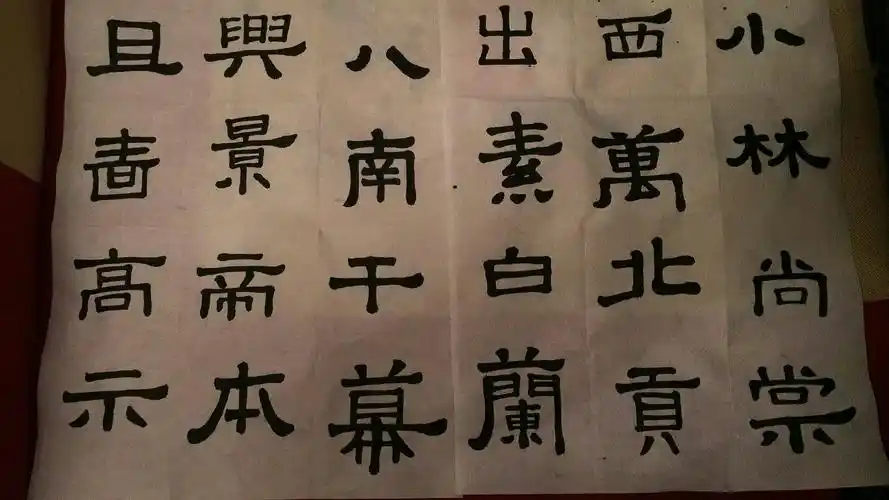 小林尚棠
西萬北貢
出素白蘭
八南干幕
興景帝本
且嗇高示